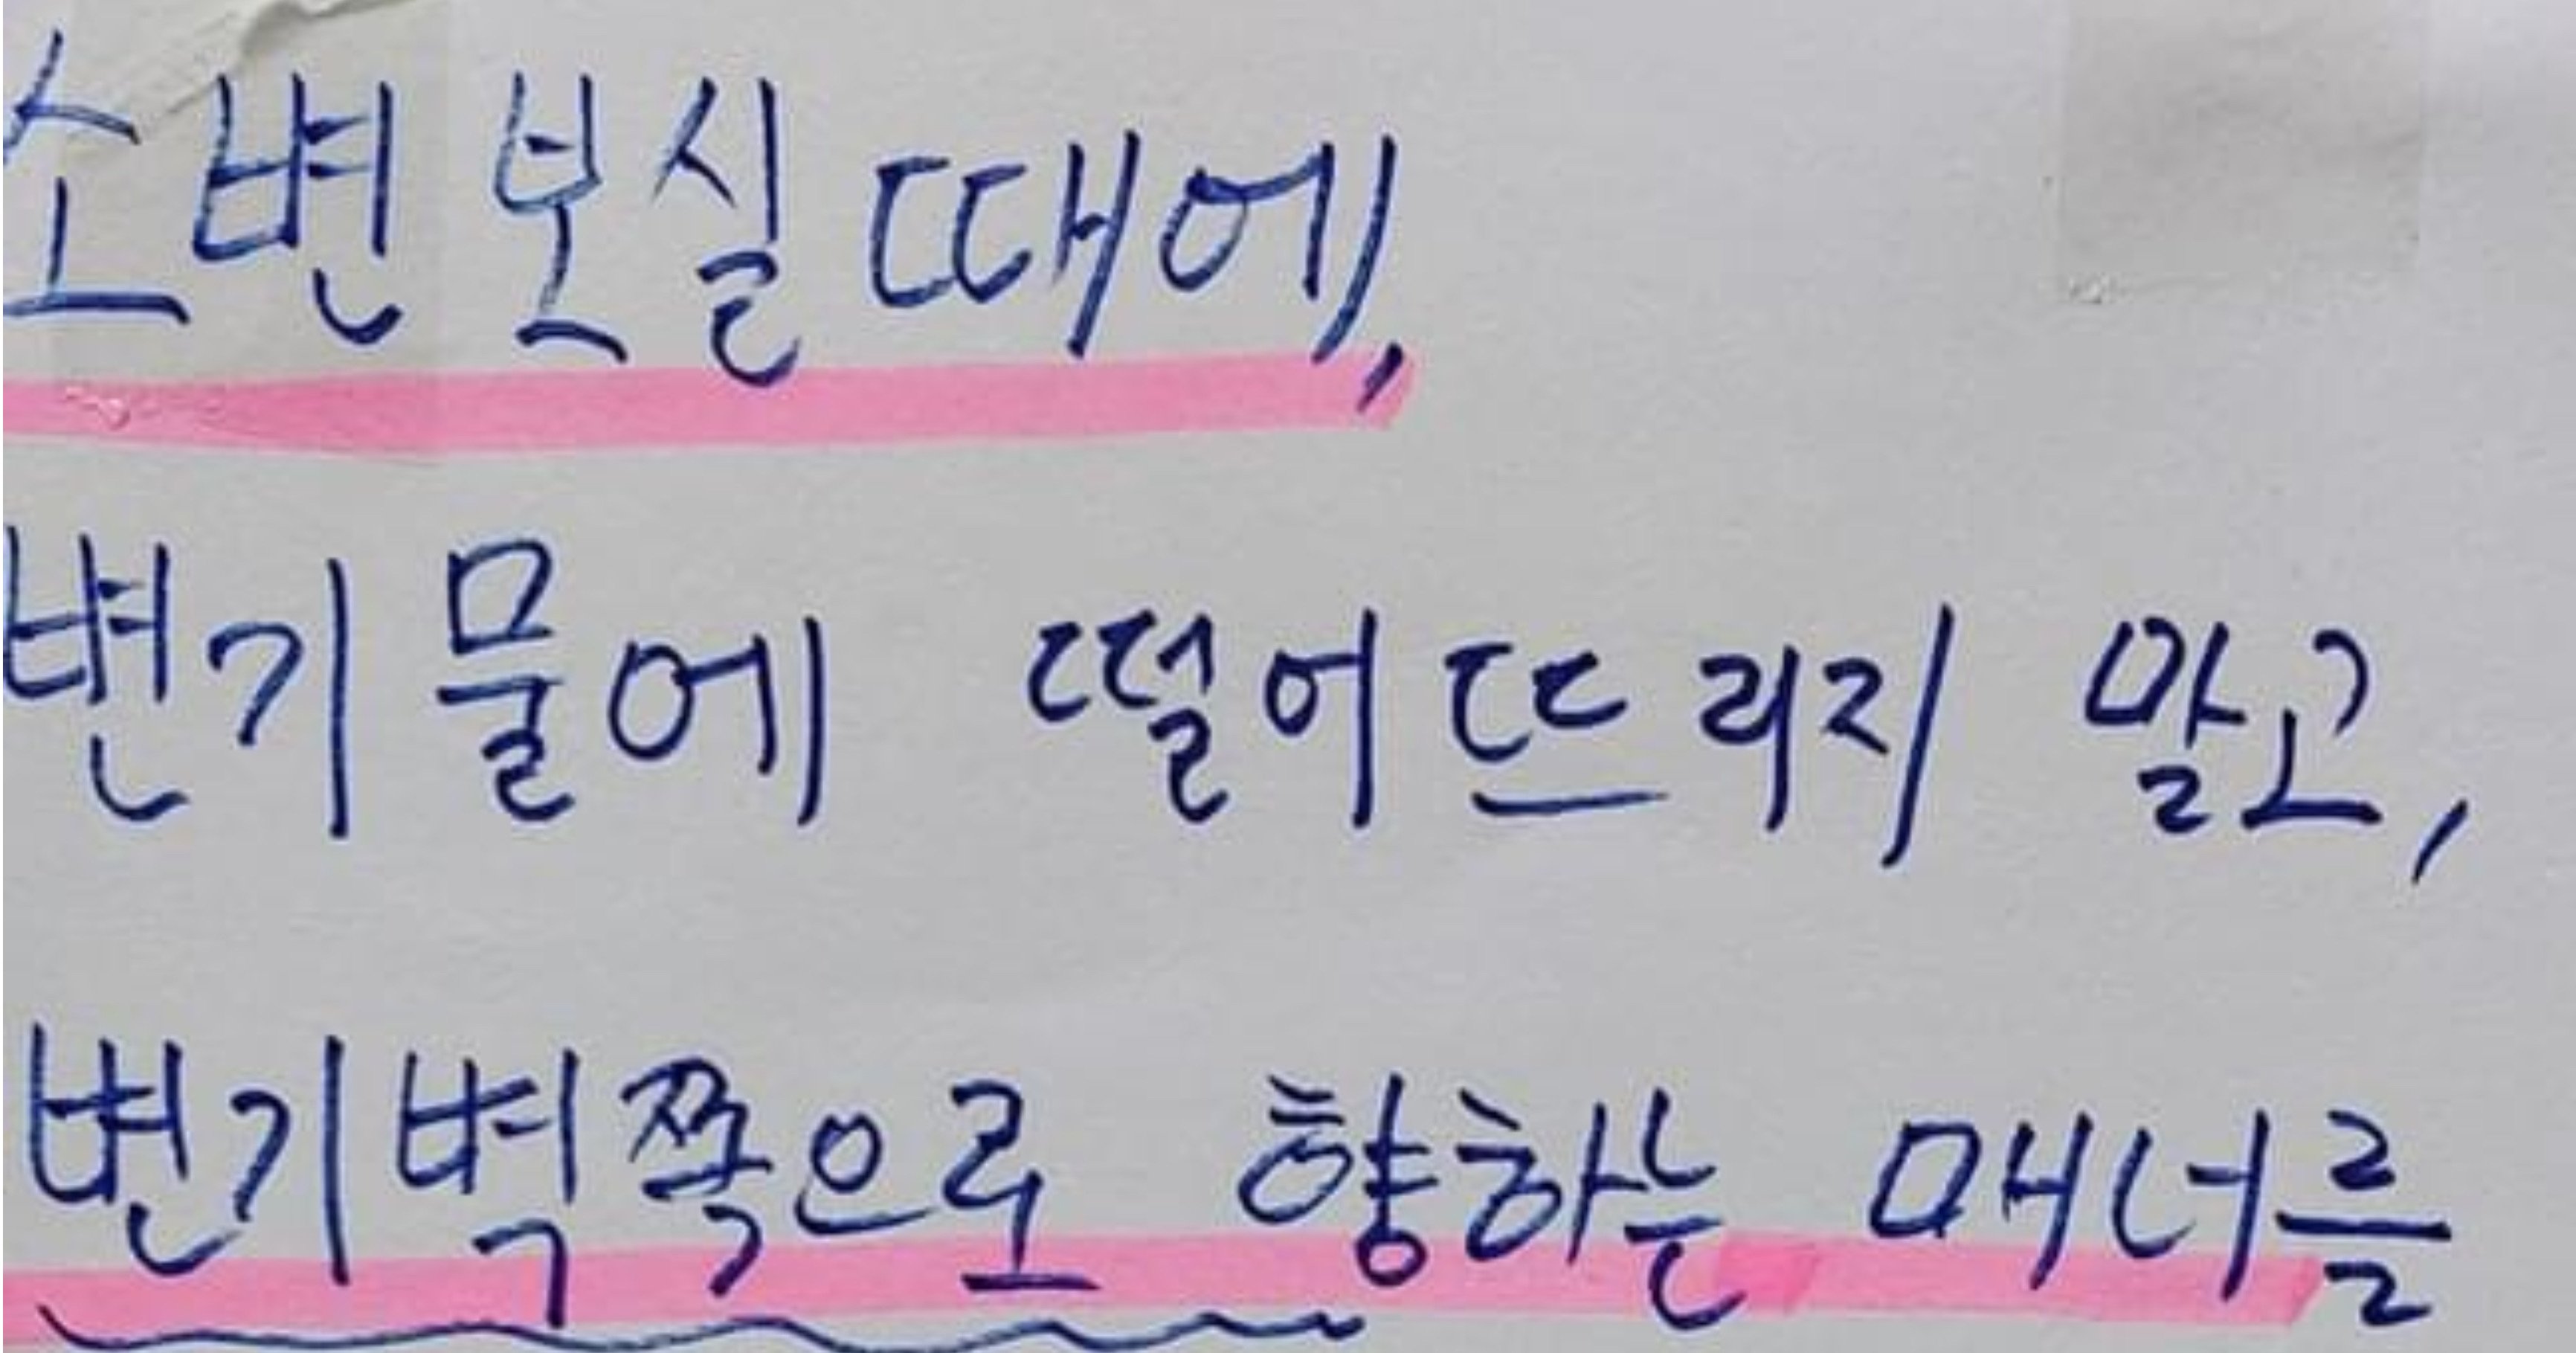 소변 보실 때에,
변기 물에 떨어뜨리지 말고,
변기 벽쪽으로 향하는 매너를